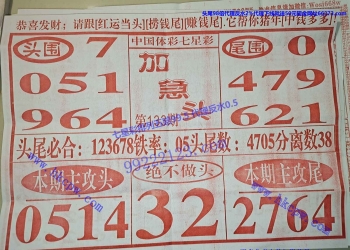 恭喜发财：请跟[红运当头][捞钱尾][赚钱尾].它帮你猪年[中钱多多!
头围 7
051
964
中国体彩七星彩
加
急
头
第133期
尾围 0
479
621
头尾必合：123678铁率：05头尾数：4705分离38
本期主攻头
0514
绝不做头
32
本期主攻尾
2764